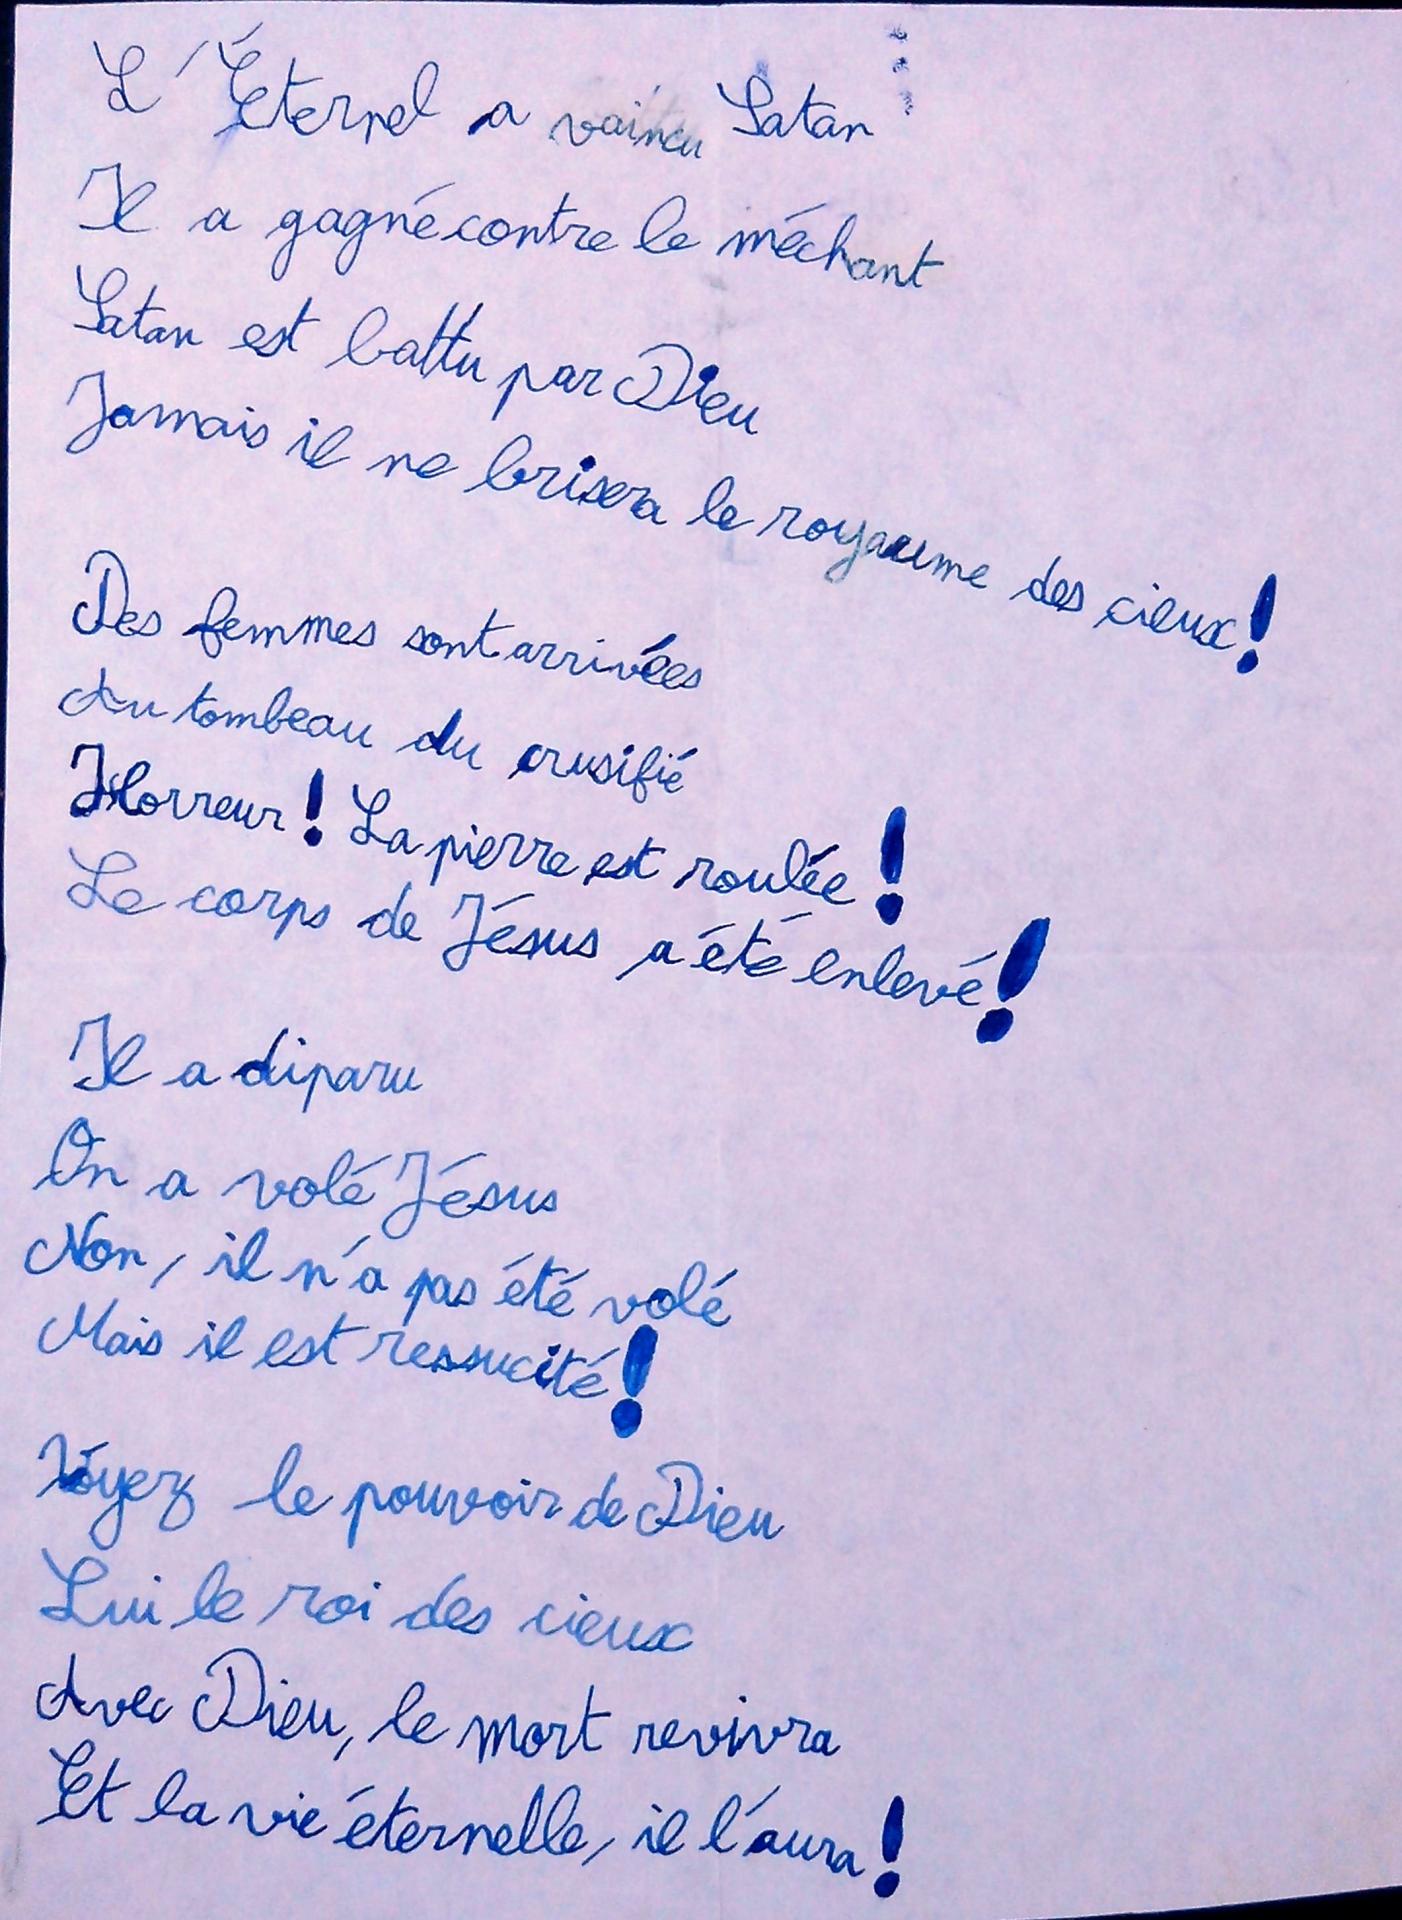 L'Éternel a vaincu Satan
Il a gagné contre le méchant
Satan est battu par Dieu
Jamais il ne brisera le royaume des cieux!
Des femmes sont arrivées
Au tombeau du crusifié
Horreur! La pierre est roulée!
Le corps de Jésus a été enlevé!
Il a diparu
On a volé Jésus
Non, il n'a pas été volé
Mais il est ressucité!
Voyez le pouvoir de Dieu
Lui le roi des cieux
Avec Dieu, le mort revivra
Et la vie éternelle, il l'aura!